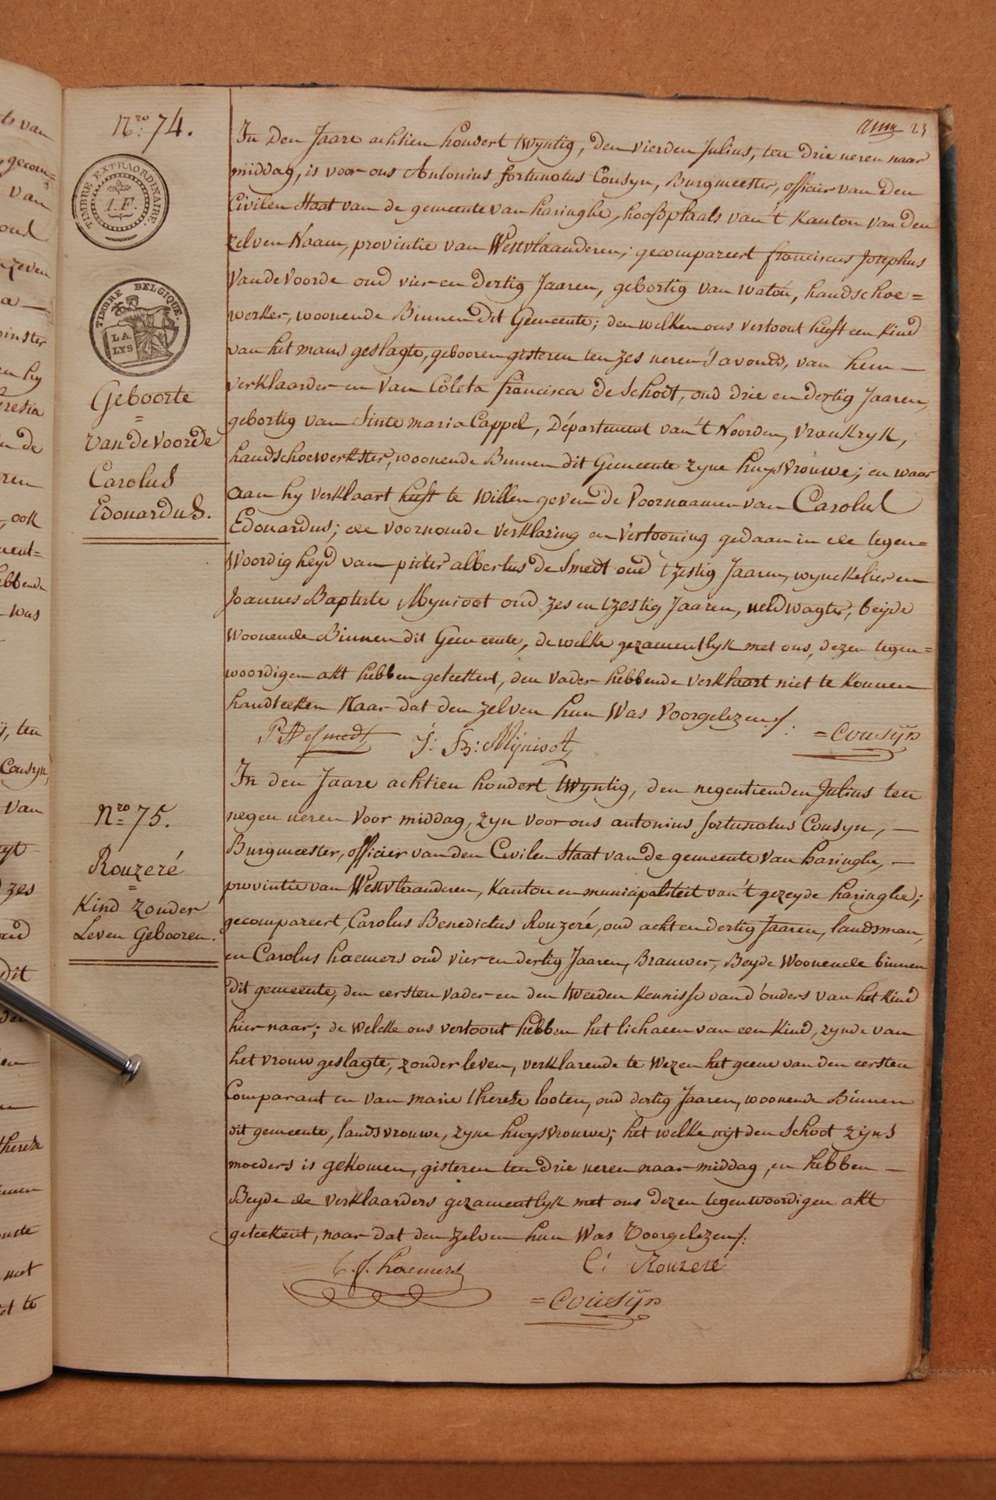 23
Nro 74.
TIMBRE EXTRAORDINAIRE.
1. F.
TIMBRE BELGIQUE
LA LYS
Geboorte
=
Van de Voorde
Carolus
Edouardus.
In Den Jaare achtien hondert twyntig, den vierden Julius, ten drie ueren naar
middag, is voor ons Antonius fortunatus Cousyn, Burgmeester, officier van den
Civilen Staat van de gemeente van haringhe, hoofdplaats van 't Kanton van den
zelven Naam, provintie van Westvlaanderen; gecompareert franciscus Josephus
Van de Voorde oud vier en dertig Jaaren, gebortig van watou, handschoe=
werker, woonende Binnen dit Gemeente; den welken ons vertoont heeft een kind
van het mans geslagte, gebooren gisteren ten zes ueren s'avonds, van hem —
verklaarder en van Coleta francisca de Schodt, oud drie en dertig Jaaren,
gebortig van Sinte maria Cappel, Départment van 't Noorden, Vrankryk,
handschoewerkster, woonende Binnen dit Gemeente zyne huysvrouwe; en waar
aan hy verklaart heeft te willen geven de Voornaamen van Carolus
Edouardus; de voornoemde verklaring en vertooning gedaan in de tegen=
Woordigheyd van pieter albertus de Smedt oud tzestig Jaaren, wynckelier en
Joannes Baptiste Mynsoot oud zes en tzestig Jaaren, veldwagter, beyde
woonende Binnen dit Gemeente, de welke gezamentlyk met ons, dezen tegen=
woordigen akt hebben geteekent, den vader hebbende verklaart niet te konnen
handteeken Naar dat den zelven hun Was Voorgelezen /:
P A desmedt J: B: Mynsoot =Cousyn
Nro 75.
Rouzeré
=
Kind zonder
Leven Gebooren.
In den Jaare achtien hondert twyntig, den negentienden Julius ten
negen ueren Voor middag, zyn voor ons antonius fortunatus Cousyn, —
Burgmeester, officier van den Civilen Staat van de gemeente Van haringhe, —
provintie van Westvlaanderen, Kanton en municipaliteit van 't gezeyde haringhe;
gecompareert, Carolus Benedictus Rouzeré, oud acht en dertig Jaaren, landsman,
en Carolus haemers oud vier en dertig Jaaren, Brauwer, Beyde Woonende binnen
dit gemeente, den eersten vader en den tweeden Kennisse van d'ouders van het kind
hier naar; de welcke ons vertoont hebben het lichaem van een kind, zynde van
het vrouw geslagte, zonder leven, verklarende te wezen het geene van den eersten
Comparant en van marie therese looten, oud dertig Jaaren, woonende Binnen
dit gemeente, landsvrouwe, zyne huysvrouwe; het welke uyt den Schoot zyns
moeders is gekomen, gisteren ten drie ueren naar middag, en hebben —
Beyde de verklaarders gezamentlyk met ons dezen tegenwoordigen akt
geteekent, naar dat den zelven hun Was Voorgelezen /:
haemers C: Rouzeré
=Cousyn